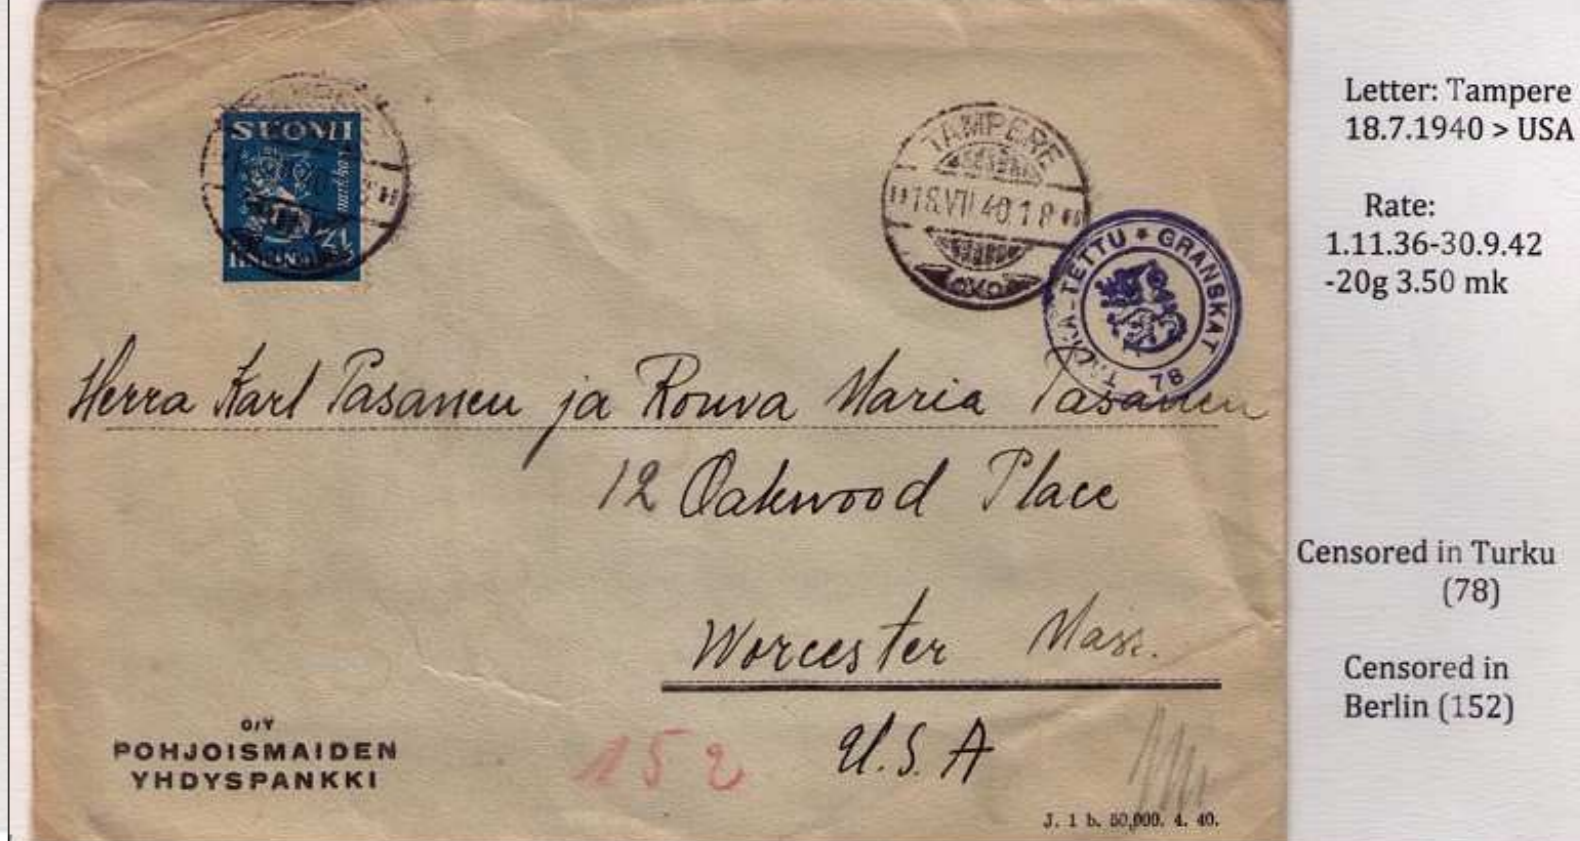 SUOMI
markkaa
FINLAND
TAMPERE
18.VII 40.18
TARKASTETTU * GRANSKAT
78
Herra Karl Pasanen ja Rouva Maria Pasanen
12 Oakwood Place
Worcester Mass.
U.S.A
152
O/Y
POHJOISMAIDEN
YHDYSPANKKI
J. 1 b. 50,000. 4. 40.
Letter: Tampere
18.7.1940 > USA
Rate:
1.11.36-30.9.42
-20g 3.50 mk
Censored in Turku
(78)
Censored in
Berlin (152)